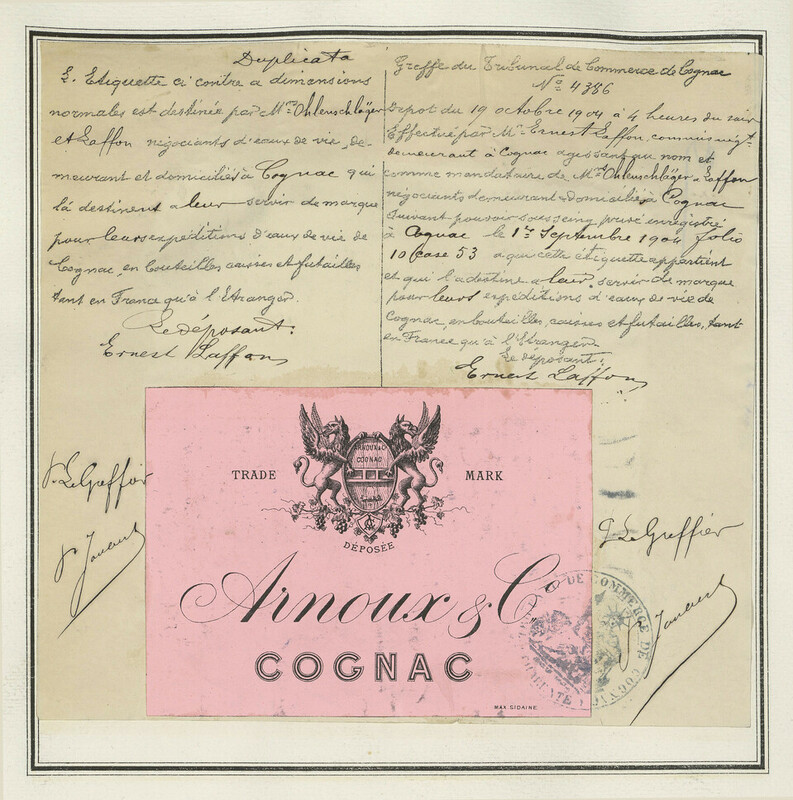 Duplicata
L'Etiquette ci contre a dimensions
normales est destinée par Mrs Ohlenschläger
et Laffon négociants d'eaux de vie, de-
meurant et domiciliés à Cognac qui
la destinent a leur servir de marque
pour leurs expéditions d'eaux de vie de
Cognac, en bouteilles caisses et futailles
tant en France qu'à l'Etranger.
Le déposant:
Ernest Laffon
Greffe du Tribunal de Commerce de Cognac
No 4386
Depot du 19 octobre 1904 à 4 heures du soir
Effectué par Mr Ernest Laffon, commis négt
demeurant à Cognac agissant au nom et
comme mandataire de Mrs Ohlenschläger & Laffon
négociants demeurant & domiciliés à Cognac
suivant pouvoir sous seing privé enregistré
à Cognac le 1er Septembre 1904 folio
10 Case 53 a qui cette étiquette appartient
et qui l'a destine a leur servir de marque
pour leurs expéditions d'eaux de vie de
Cognac, en bouteilles, caisses et futailles, tant
en France qu'à l'Etranger
Le déposant:
Ernest Laffon
Le Greffier
Le Greffier
ARNOUX & Co
COGNAC
TRADE MARK
DÉPOSÉE
Arnoux & Co.
COGNAC
MAX SIDAINE
DE COMMERCE DE COGNAC